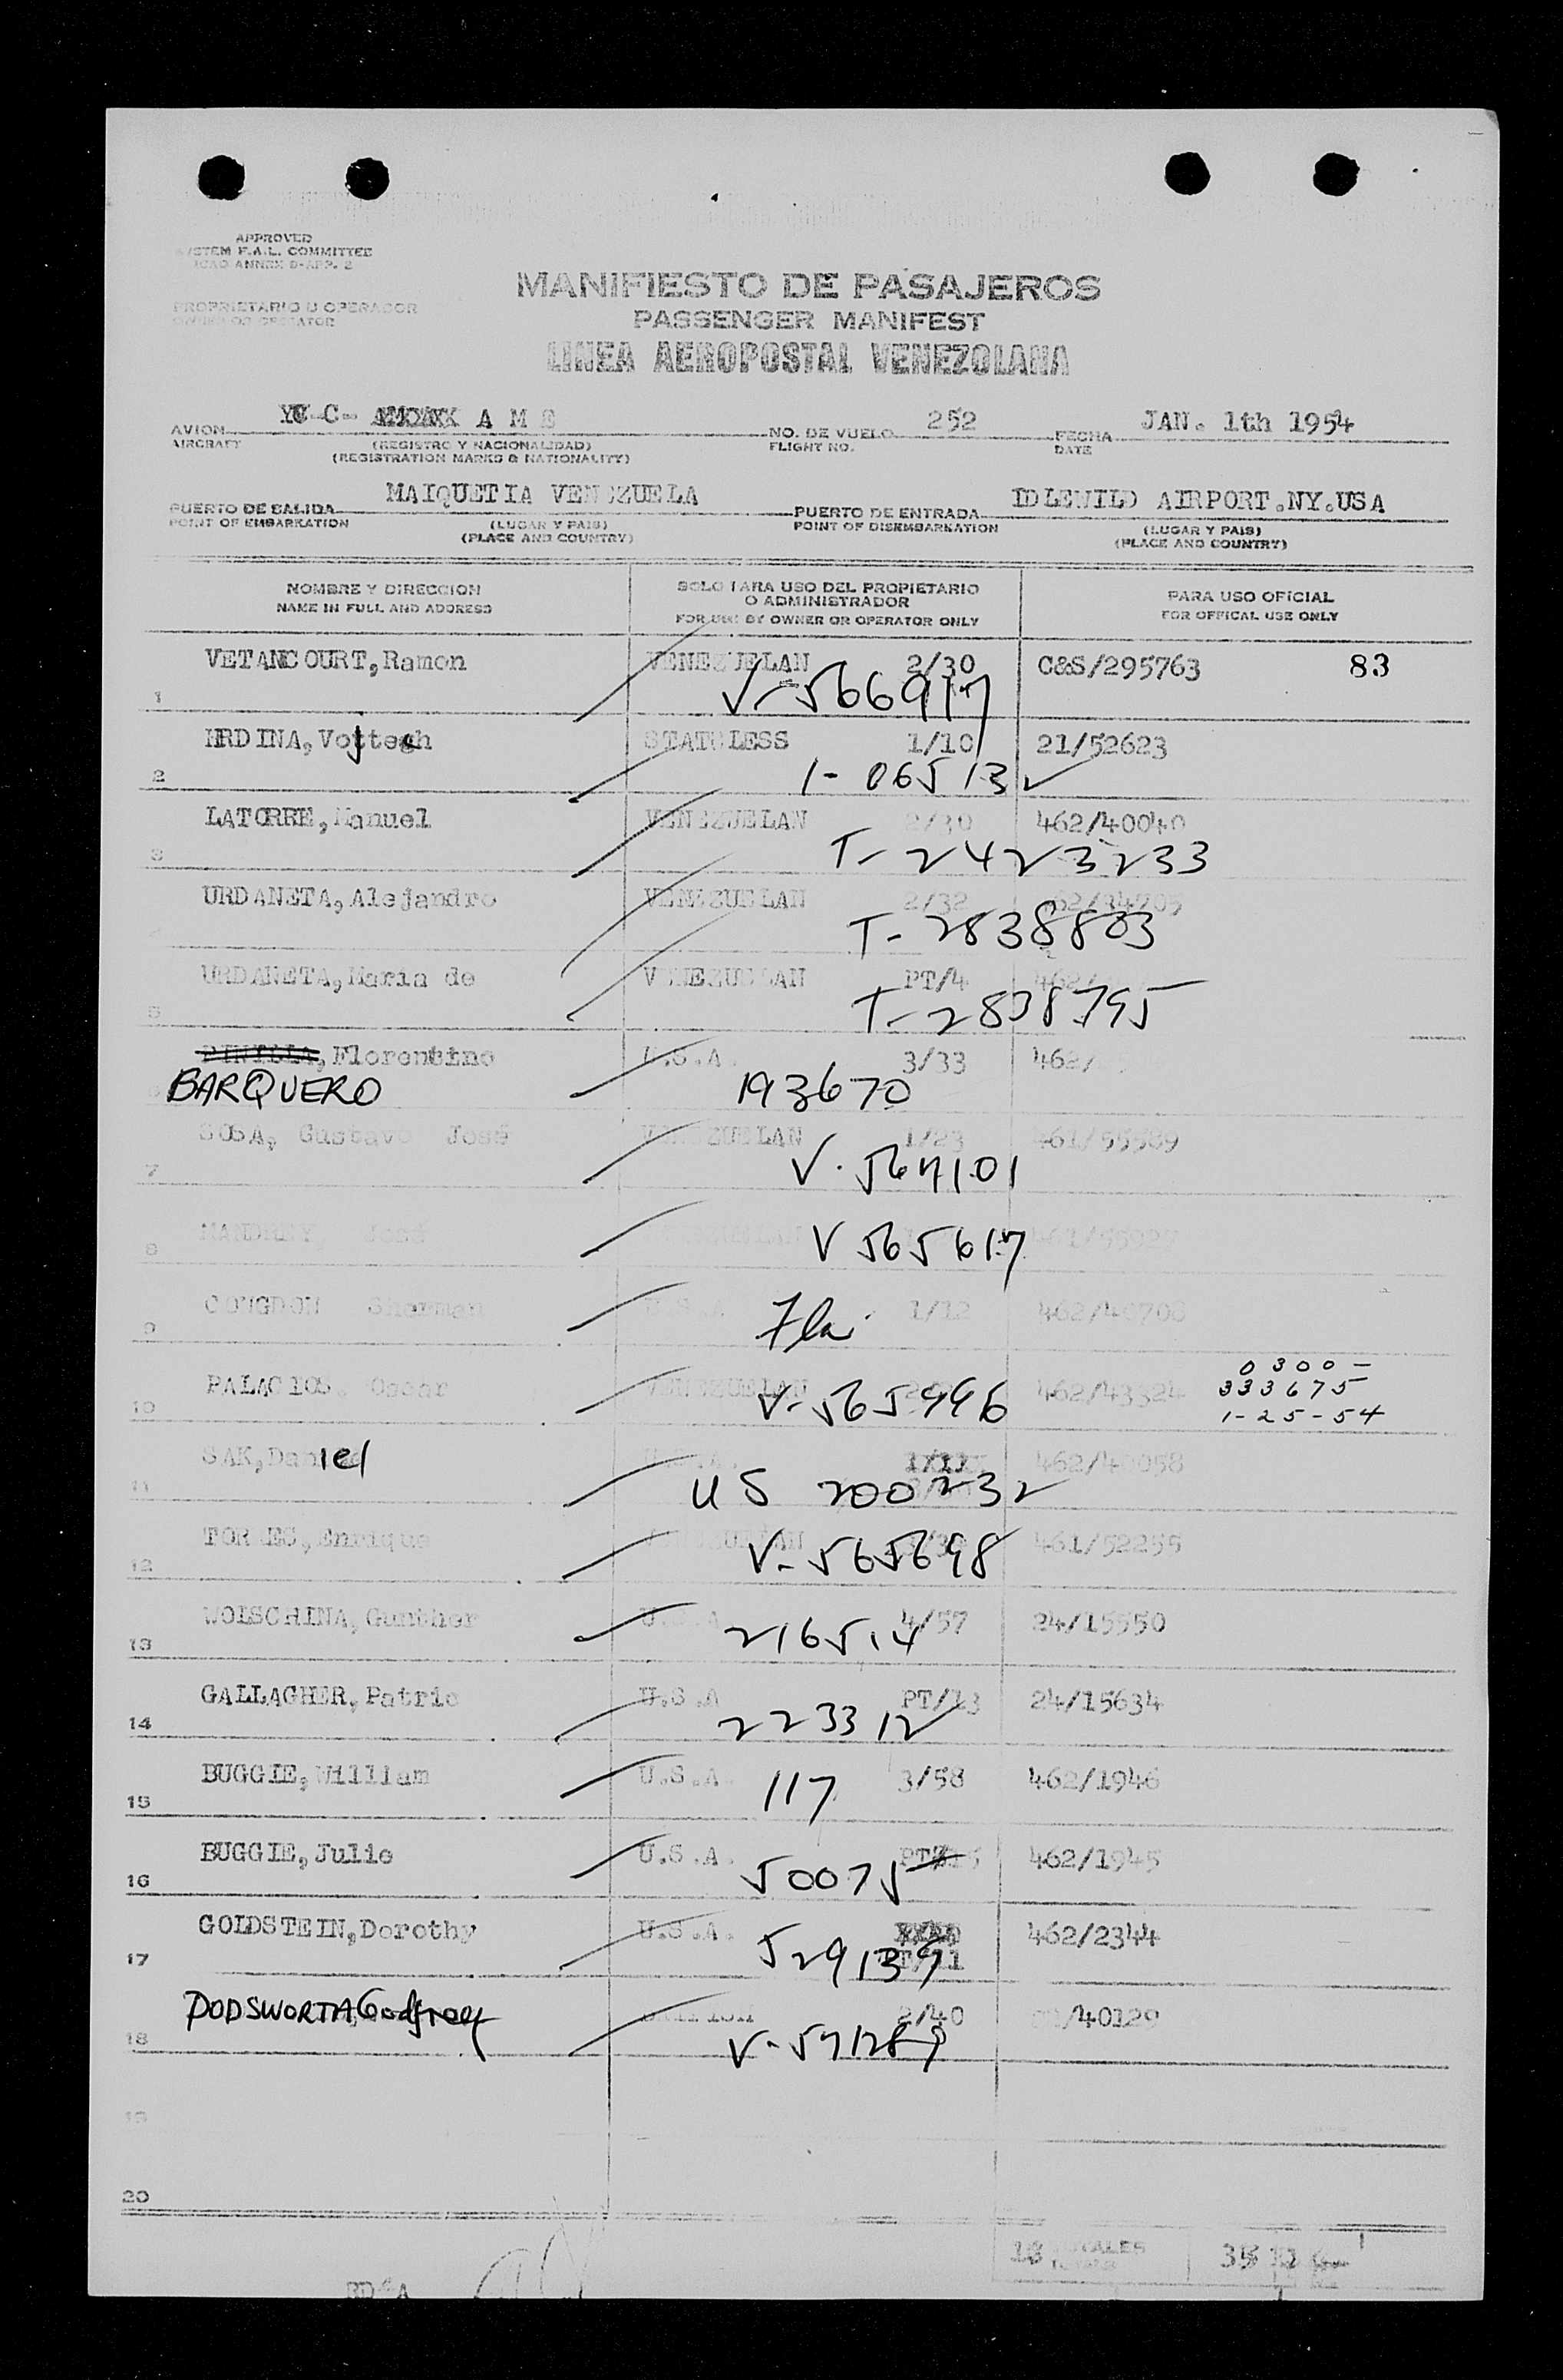 APPROVED
SYSTEM F.A.L. COMMITTEE
ICAO ANNEX 9-APP. 2
PROPRIETARIO U OPERADOR
OWNER OR OPERATOR
MANIFIESTO DE PASAJEROS
PASSENGER MANIFEST
LINEA AEROPOSTAL VENEZOLANA
AVION YV-C- A M S NO. DE VUELO 252 FECHA JAN. 1th 1954
AIRCRAFT (REGISTRO Y NACIONALIDAD) FLIGHT NO. DATE
(REGISTRATION MARKS & NATIONALITY)
PUERTO DE SALIDA MAIQUETIA VENEZUELA PUERTO DE ENTRADA IDLEWILD AIRPORT.NY.USA
POINT OF EMBARKATION (LUGAR Y PAIS) POINT OF DISEMBARKATION (LUGAR Y PAIS)
(PLACE AND COUNTRY) (PLACE AND COUNTRY)
NOMBRE Y DIRECCION SOLO PARA USO DEL PROPIETARIO O ADMINISTRADOR PARA USO OFICIAL
NAME IN FULL AND ADDRESS FOR USE BY OWNER OR OPERATOR ONLY FOR OFFICAL USE ONLY
VETANCOURT,Ramon VENEZUELAN 2/30 C&S/295763 83
1 V-566917
HRDINA,Vojtech STATELESS 1/10 21/52623
2 1-06513
LATORRE,Manuel VENEZUELAN 2/30 462/40040
3 T-2423233
URDANETA,Alejandro VENEZUELAN 2/32
T-2838803
URDANETA,Maria de VENEZUELAN PT/4 462/
5 T-2838795
,Florentino U.S.A. 3/33 462/
BARQUERO 193670
SOSA, Gustavo José VENEZUELAN 1/23 461/55589
7 V. 567101
José
8 V 565617
CONGDON Sherman 1/12
9 Fla.
PALACIOS, Oscar VENEZUELAN 462/43324 0300-
10 V-565996 333675
1-25-54
SAK,Daniel U.S.A. 462/40058
11 US 200232
TORRES,Enrique 461/52255
12 V-565698
WOISCHINA,Gunther U.S.A 4/57 24/15550
13 216514
GALLAGHER,Patric U.S.A PT/13 24/15634
14 223312
BUGGIE,William U.S.A. 3/58 462/1946
15 117
BUGGIE,Julie U.S.A. 462/1945
16 50075
GOLDSTEIN,Dorothy U.S.A. 462/2344
17 529139
DODSWORTH,Godfroy 2/40 /40129
18 V-571289
19
20
18 TOTALES